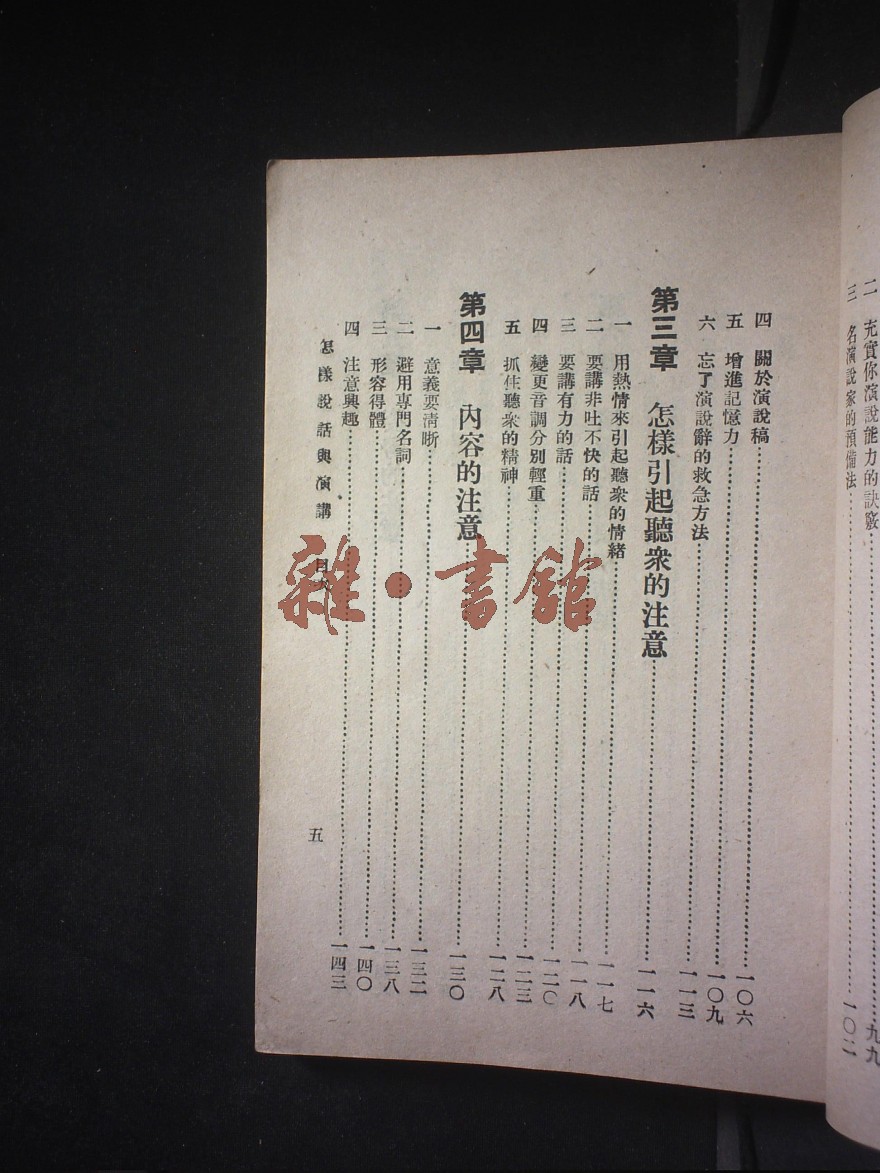 二　充實你演說能力的訣竅……九九
三　名演說家的預備法……一〇二
四　關於演說稿……一〇六
五　增進記憶力……一〇九
六　忘了演說辭的救急方法……一一三
第三章　怎樣引起聽衆的注意……一一六
一　用熱情來引起聽衆的情緒……一一七
二　要講非吐不快的話……一一八
三　要講有力的話……一二〇
四　變更音調分別輕重……一二三
五　抓住聽衆的精神……一二八
第四章　內容的注意……一三〇
一　意義要淸晰……一三二
二　避用專門名詞……一三八
三　形容得體……一四〇
四　注意興趣……一四三
怎樣說話與演講　目次
五
雜·書館